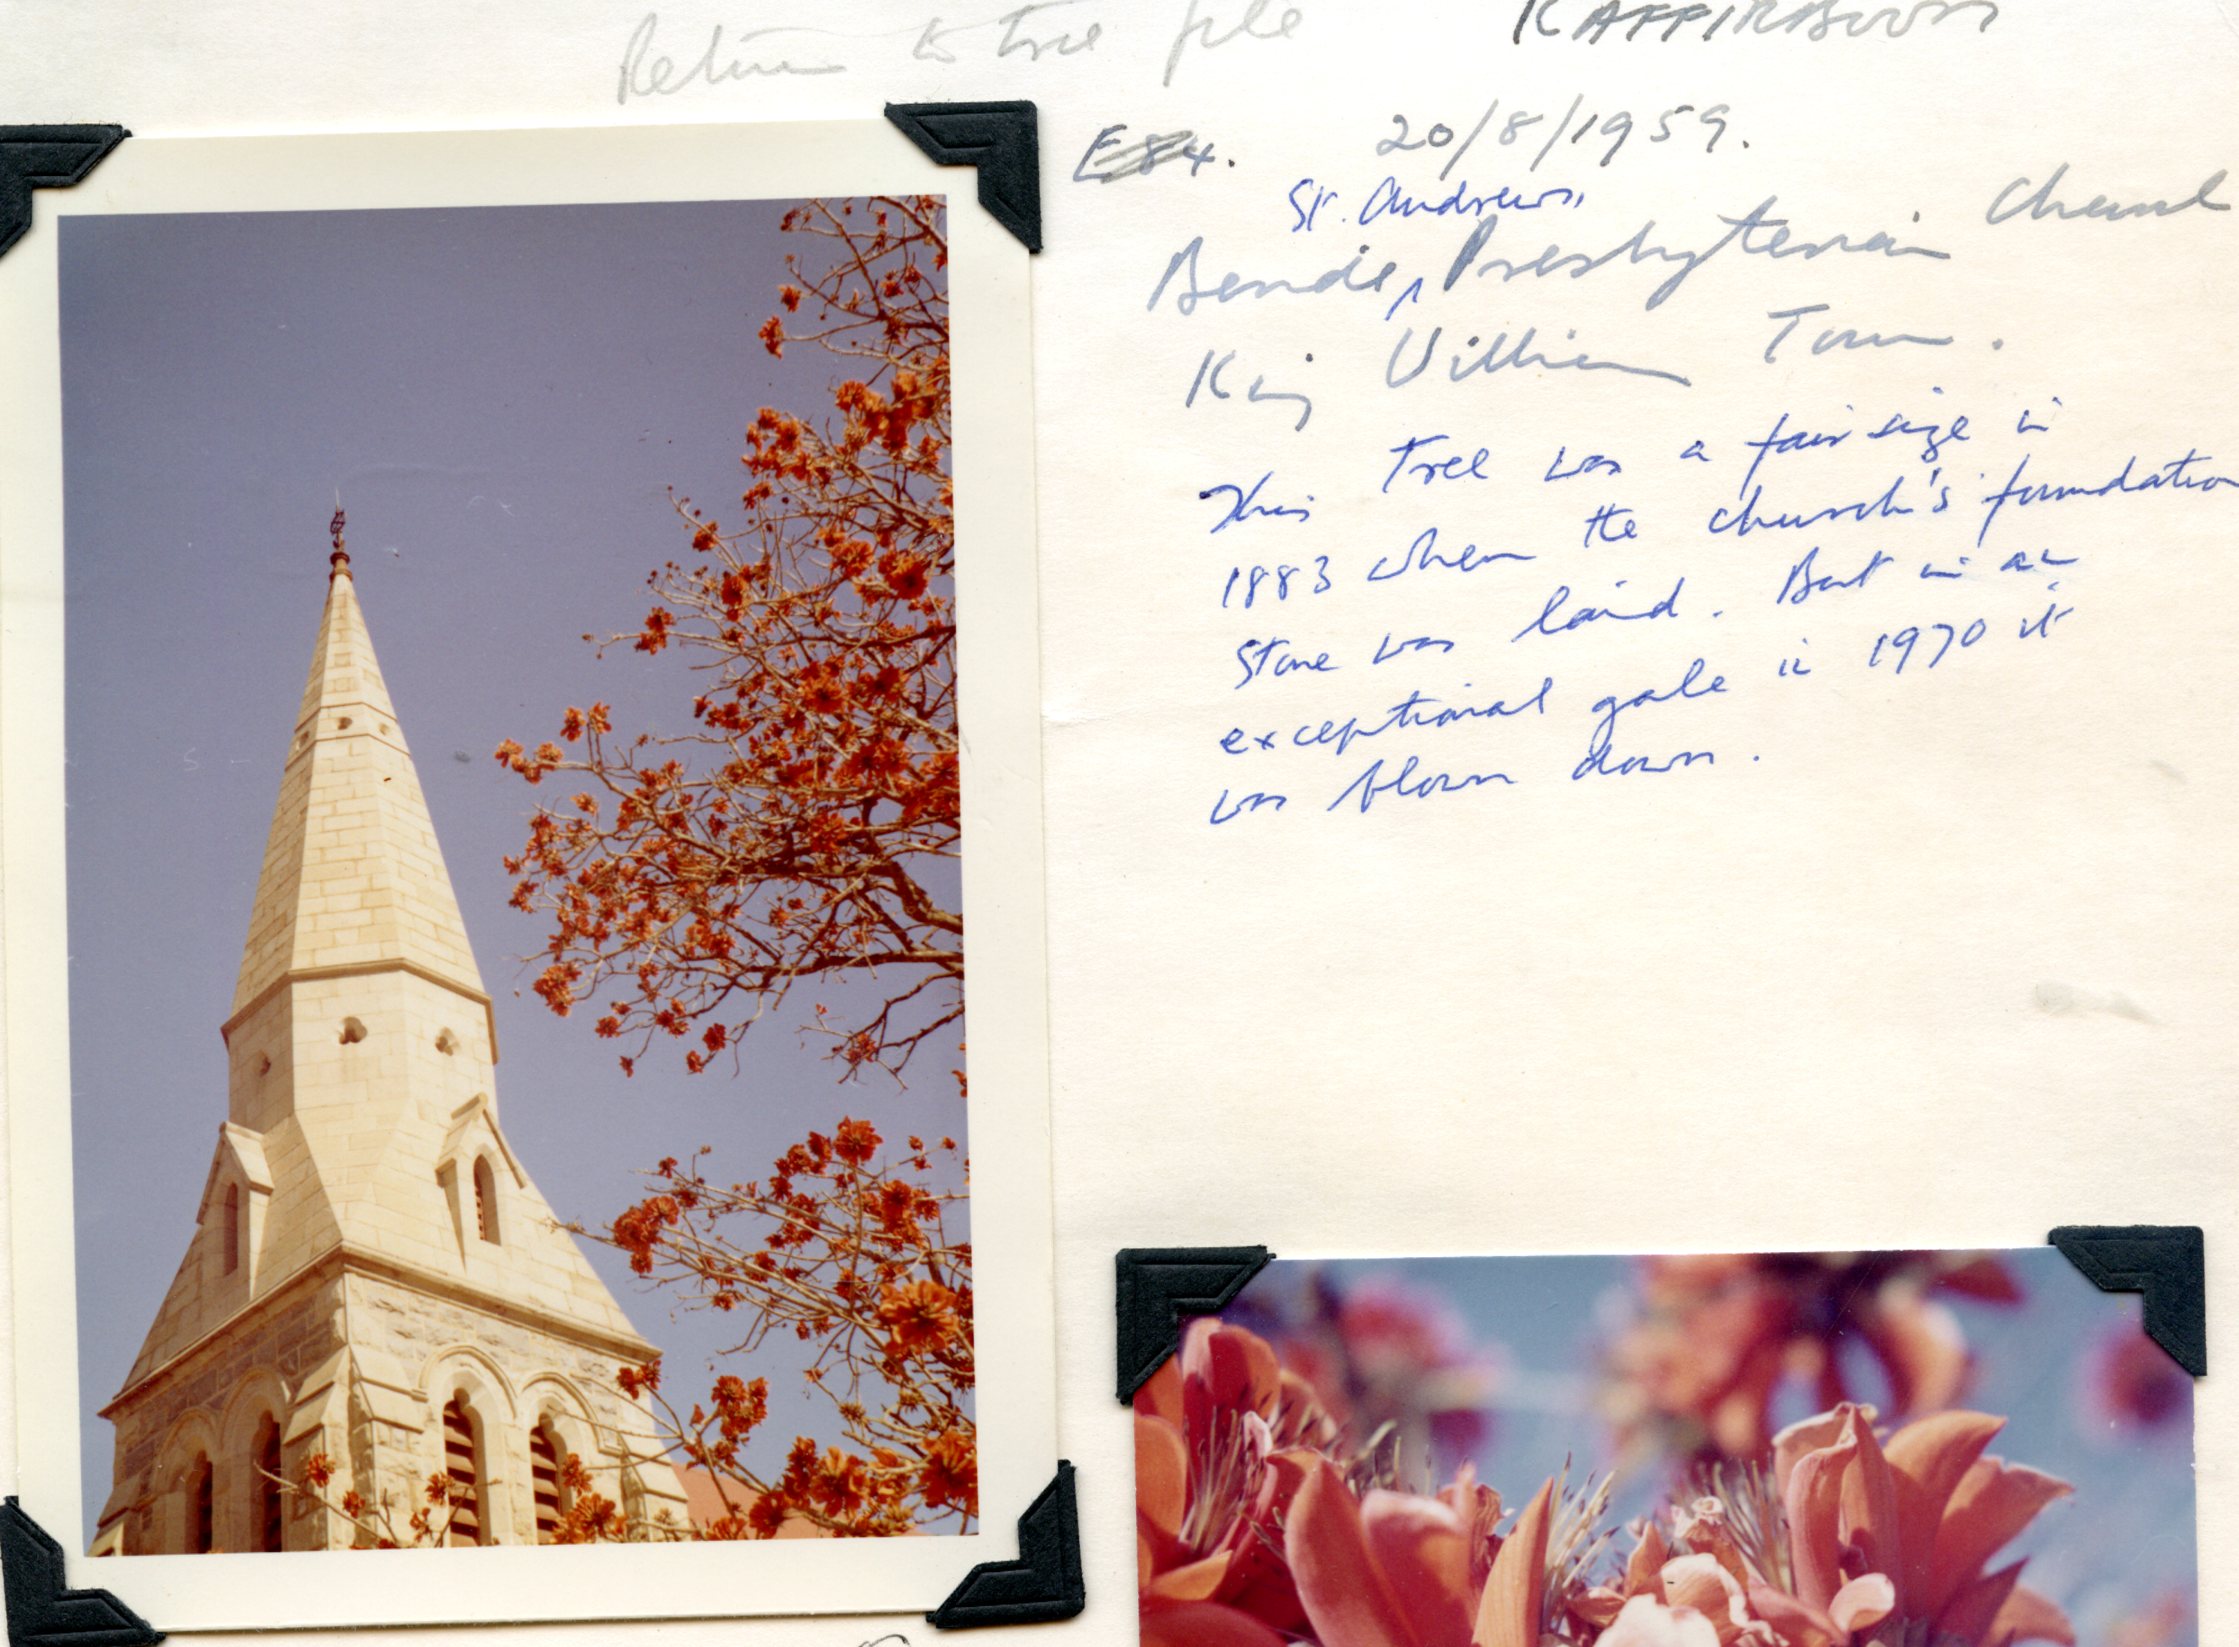 Return to tree file
KAFFIRBOOM
E84. 20/8/1959.
St. Andrews
Beside Presbyterian Church
King William Town.
This Tree was a fair size in
1883 when the church's foundation
stone was laid. But in an
exceptional gale in 1970 it
was blown down.